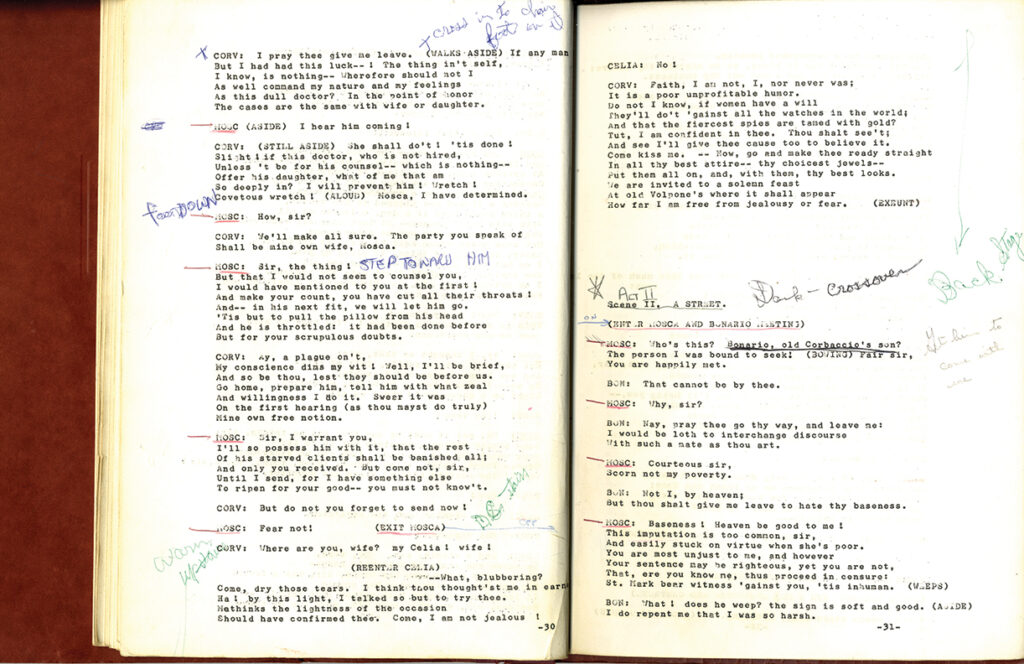 x cross in to chair
foot on it
x CORV: I pray thee give me leave. (WALKS ASIDE) If any man
But I had had this luck--! The thing in't self,
I know, is nothing-- Wherefore should not I
As well command my nature and my feelings
As this dull doctor? In the point of honor
The cases are the same with wife or daughter.
MOSC (ASIDE) I hear him coming!
CORV: (STILL ASIDE) She shall do't! 'tis done!
Slight! if this doctor, who is not hired,
Unless 't be for his counsel-- which is nothing--
Offer his daughter, what of me that am
So deeply in? I will prevent him! Wretch!
Covetous wretch! (ALOUD) Mosca, I have determined.
DOWN
MOSC: How, sir?
CORV: We'll make all sure. The party you speak of
Shall be mine own wife, Mosca.
MOSC: Sir, the thing! STEP TOWARD HIM
But that I would not seem to counsel you,
I would have mentioned to you at the first!
And make your count, you have cut all their throats!
And-- in his next fit, we will let him go.
'Tis but to pull the pillow from his head
And he is throttled! it had been done before
But for your scrupulous doubts.
CORV: Ay, a plague on't,
My conscience dims my wit! Well, I'll be brief,
And so be thou, lest they should be before us.
Go home, prepare him, tell him with what zeal
And willingness I do it. Swear it was
On the first hearing (as thou mayst do truly)
Mine own free notion.
MOSC: Sir, I warrant you,
I'll so possess him with it, that the rest
Of his starved clients shall be banished all;
And only you received. But come not, sir,
Until I send, for I have something else
To ripen for your good-- you must not know't.
CORV: But do not you forget to send now!
MOSC: Fear not! (EXIT MOSCA)
CORV: Where are you, wife? my Celia! wife!
warm
(REENTER CELIA)
--What, blubbering?
Come, dry those tears. I think thou thought'st me in earn
Ha!, by this light, I talked so but to try thee.
Methinks the lightness of the occasion
Should have confirmed thee. Come, I am not jealous!
-30
CELIA: No!
CORV: Faith, I am not, I, nor never was;
It is a poor unprofitable humor.
Do not I know, if women have a will
They'll do't 'gainst all the watches in the world;
And that the fiercest spies are tamed with gold?
Tut, I am confident in thee. Thou shalt see't;
And see I'll give thee cause too to believe it.
Come kiss me. -- Now, go and make thee ready straight
In all thy best attire-- thy choicest jewels--
Put them all on, and, with them, thy best looks.
We are invited to a solemn feast
At old Volpone's where it shall appear
How far I am free from jealousy or fear. (EXEUNT)
Back Stage
ACT II
Crossover
Scene II. A STREET.
ON
(ENTER MOSCA AND BONARIO MEETING)
MOSC: Who's this? Bonario, old Corbaccio's son?
The person I was bound to seek! (BOWING) Fair sir,
You are happily met.
him to
come with
me
BON: That cannot be by thee.
MOSC: Why, sir?
BON: Nay, pray thee go thy way, and leave me:
I would be loth to interchange discourse
With such a mate as thou art.
MOSC: Courteous sir,
Scorn not my poverty.
BON: Not I, by heaven;
But thou shalt give me leave to hate thy baseness.
MOSC: Baseness! Heaven be good to me!
This imputation is too common, sir,
And easily stuck on virtue when she's poor.
You are most unjust to me, and however
Your sentence may be righteous, yet you are not,
That, ere you know me, thus proceed in censure:
St. Mark bear witness 'gainst you, 'tis inhuman. (WEEPS)
BON: What! does he weep? the sign is soft and good. (ASIDE)
I do repent me that I was so harsh.
-31-